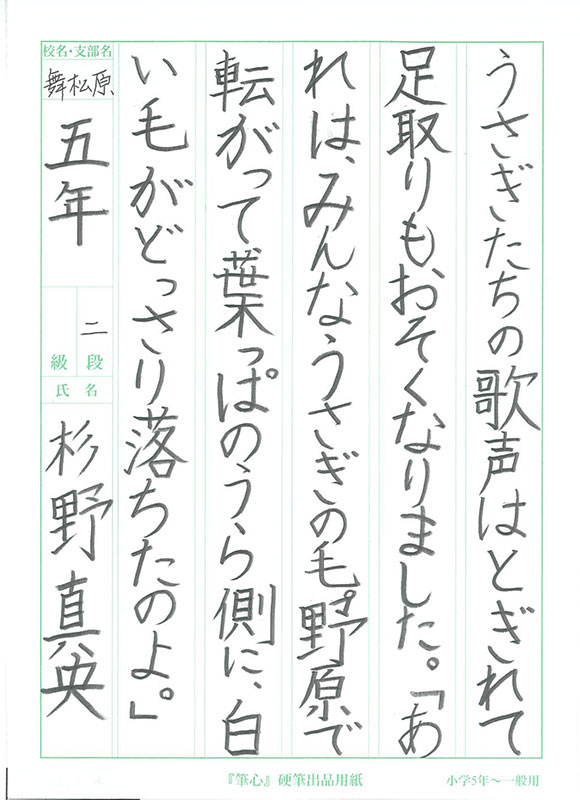 うさぎたちの歌声はとぎれて
足取りも、おそくなりました。「あ
れは、みんなうさぎの毛。野原で
転がって葉っぱのうら側に、白
い毛がどっさり落ちたのよ。」
校名・支部名
舞松原
五年
二段
級
氏名
杉野真央
『筆心』硬筆出品用紙
小学5年〜一般用